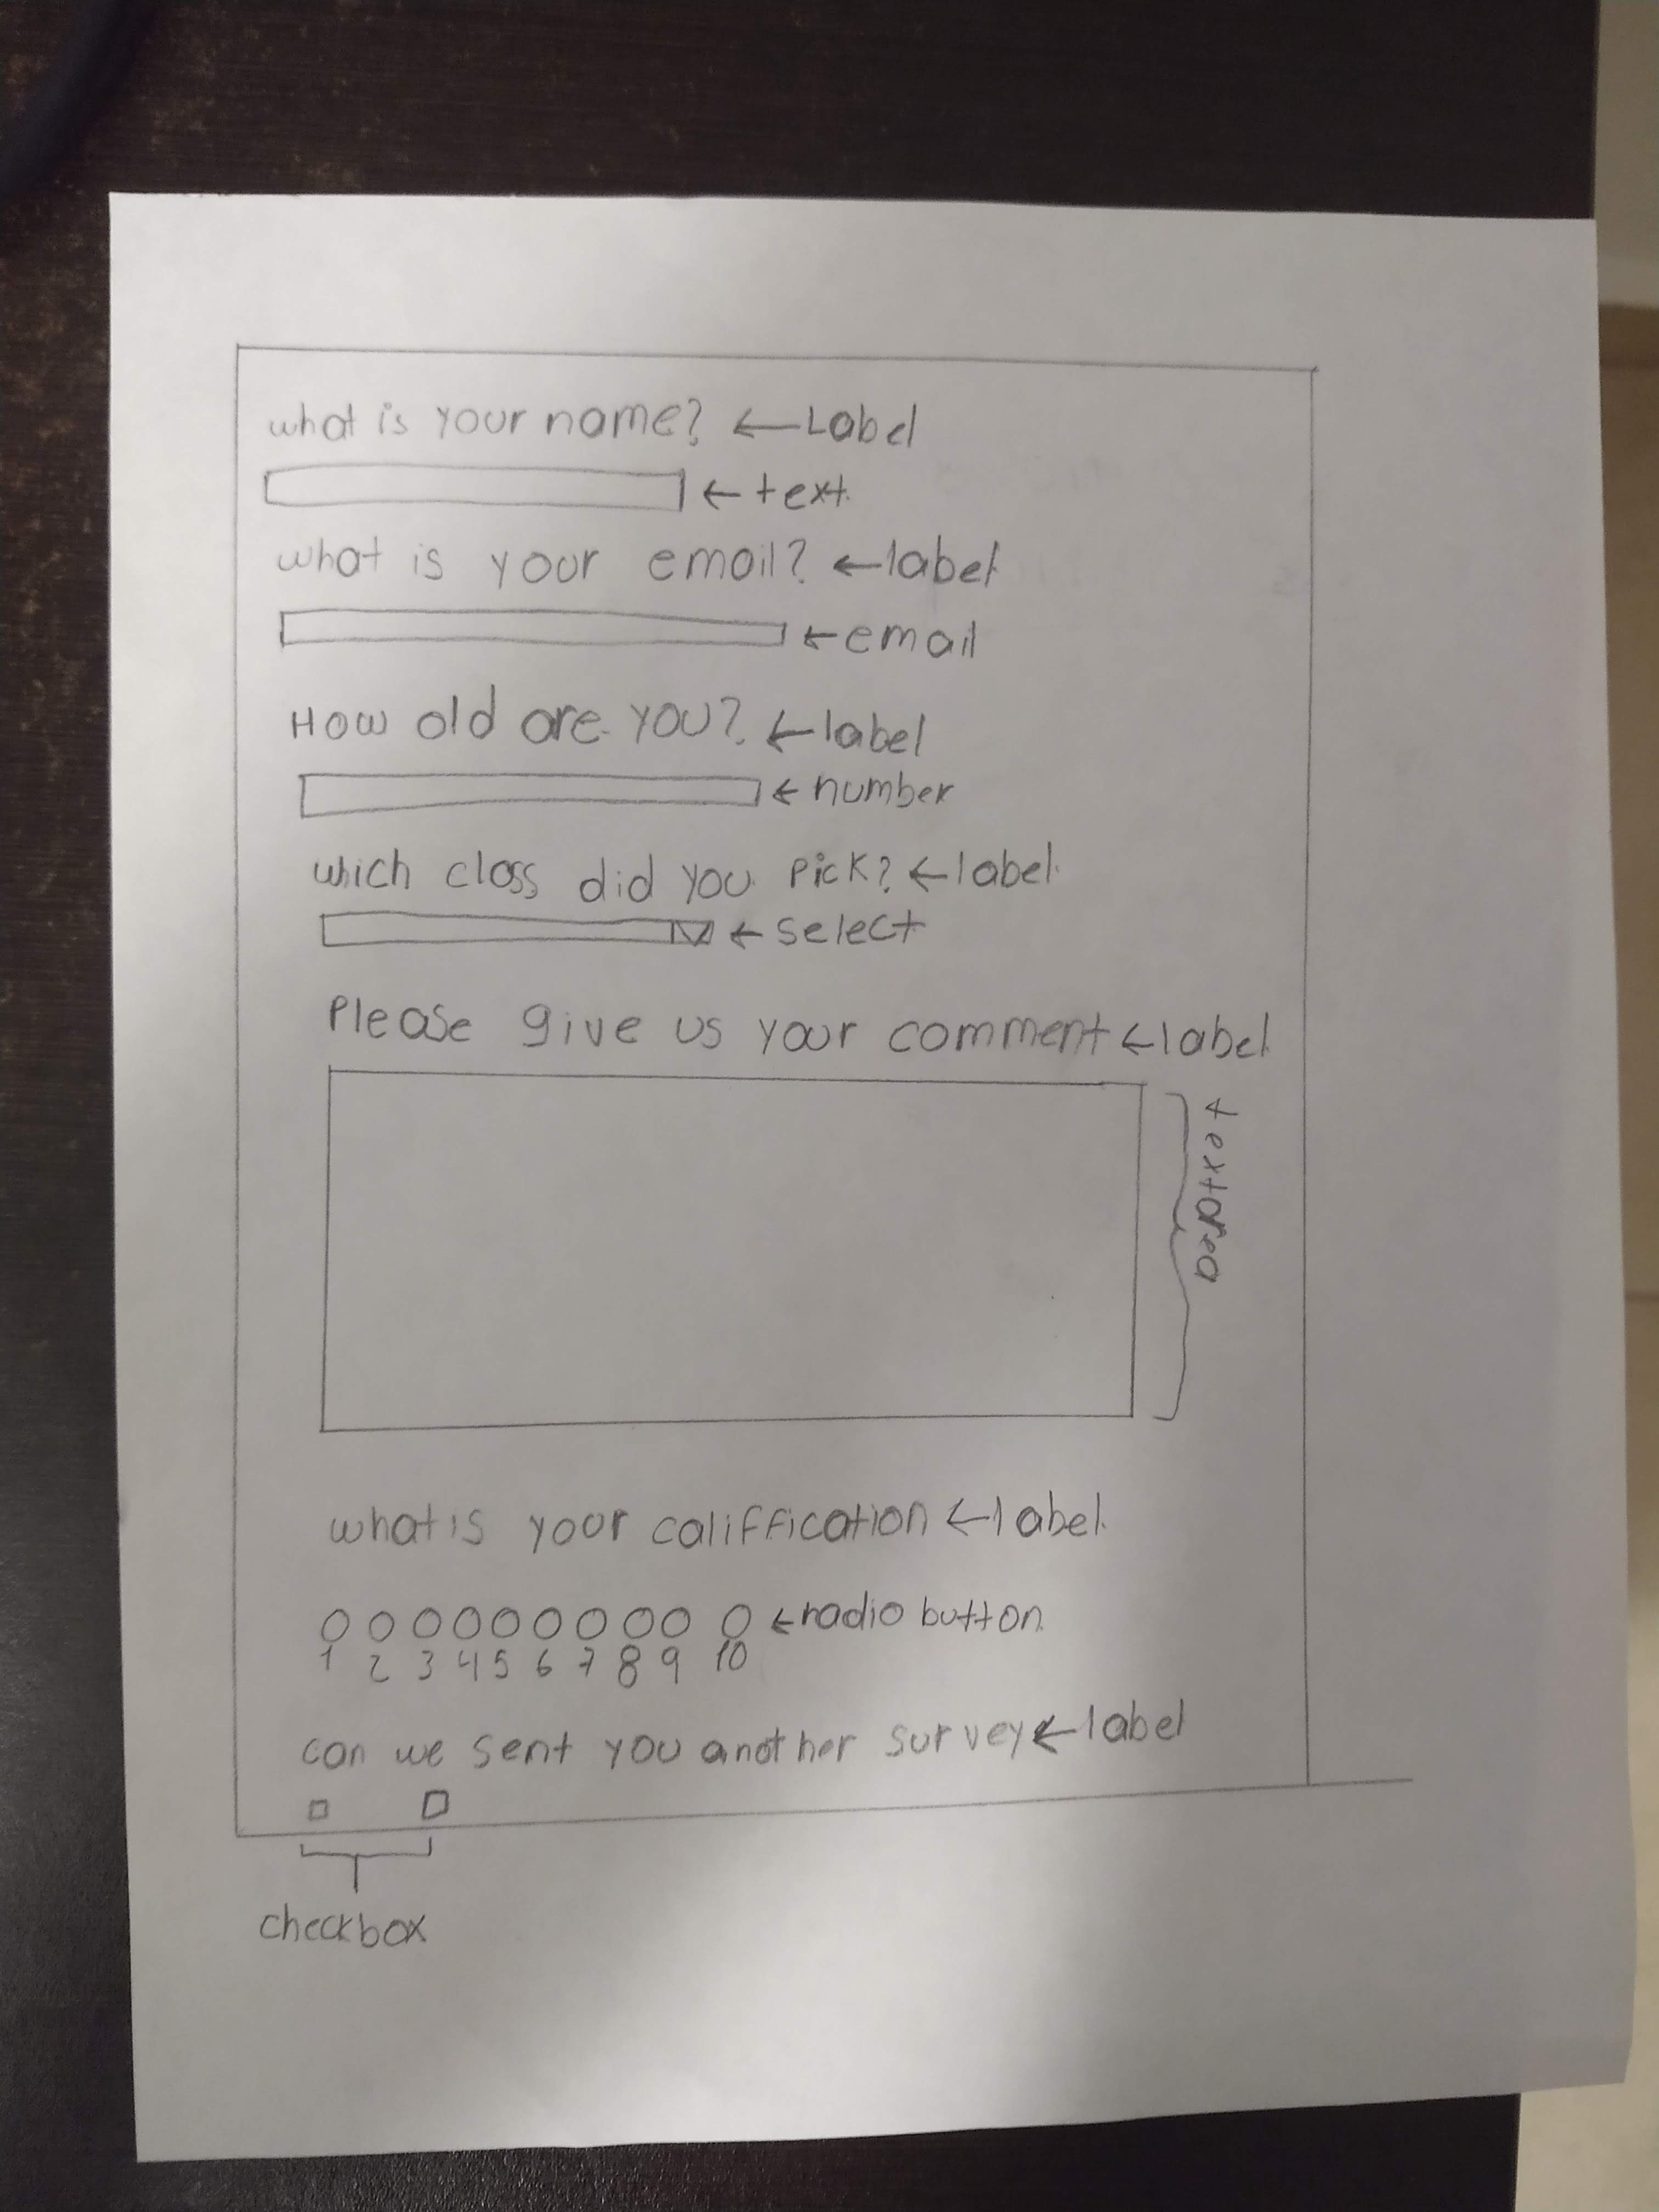 what is your name? ← Label
← text
what is your email? ← label
← email
How old are you? ← label
← number
which class did you pick? ← label
← select
Please give us your comment ← label
textArea
what is your califfication ← label
← radio button
1 2 3 4 5 6 7 8 9 10
can we sent you another survey ← label
checkbox